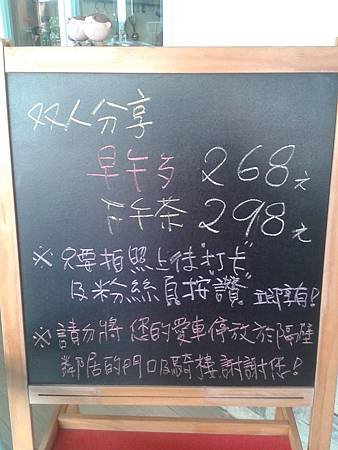 双人分享
早午多 268元
下午茶 298元
※只要拍照上传"打卡"
及粉絲頁按讚 立即享有!
※請勿將您的愛車停放於隔壁
鄰居的門口及騎樓謝謝您!